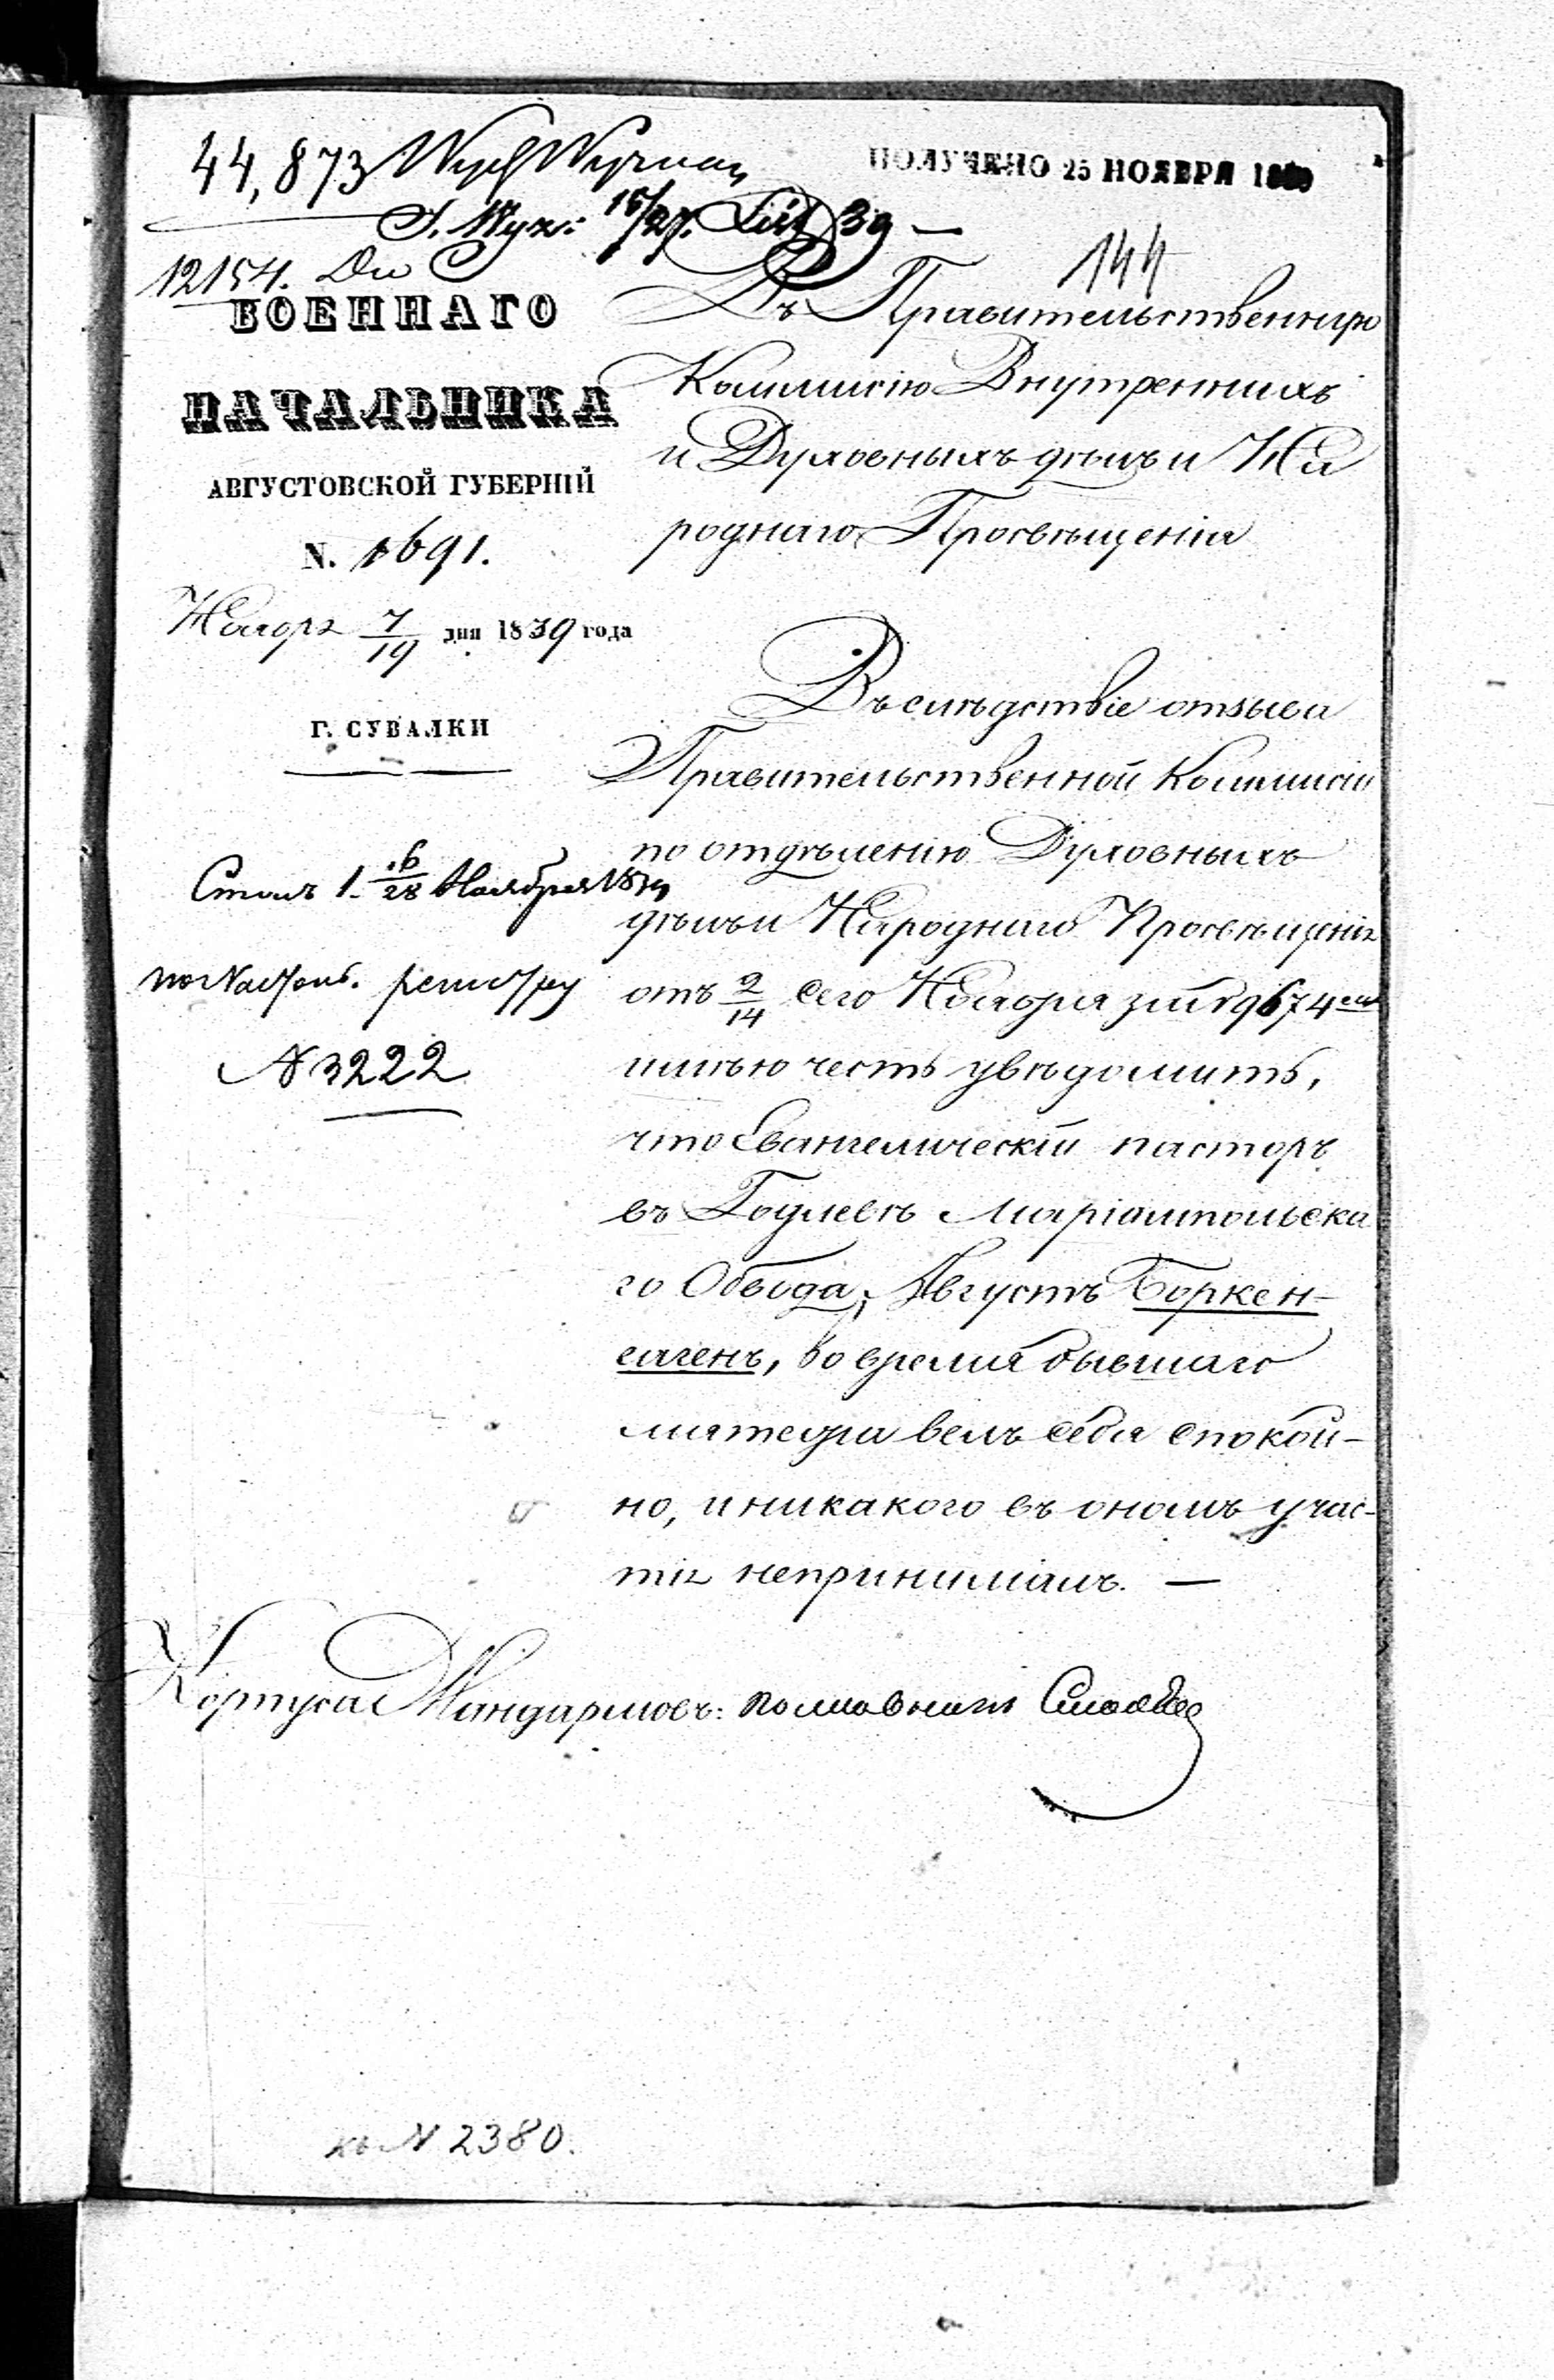 44,873
ПОЛУЧЕНО 25 НОЯБРЯ 1839
15/27. List. 39 —
144
12154.
ВОЕННАГО
НАЧАЛЬНИКА
АВГУСТОВСКОЙ ГУБЕРНІЙ
N. 1691.
Ноябрѧ 7/19 дня 1839 года
Г. СУВАЛКИ
Столъ 1. 16/28 Ноября 1839
по настол. регистру
№ 3222
Въ Правительственную
Коммисію Внутреннихъ
и Духовныхъ дѣлъ и На
роднаго Просвѣщенія
Въ слѣдствіе отзыва
Правительственной Коммисіи
по отдѣленію Духовныхъ
дѣлъ и Народнаго Просвѣщенія
отъ 2/14 сего Ноября за № 9674
имѣю честь увѣдомить,
что Евангелическій пасторъ
въ Годлевѣ Маріампольска
го Обвода, Августъ Боркен-
гагенъ, во время бывшаго
мятежа велъ себя спокой-
но, и никакого въ ономъ учас-
тія непринималъ. —
Корпуса Жандармовъ: полковникъ
къ № 2380.